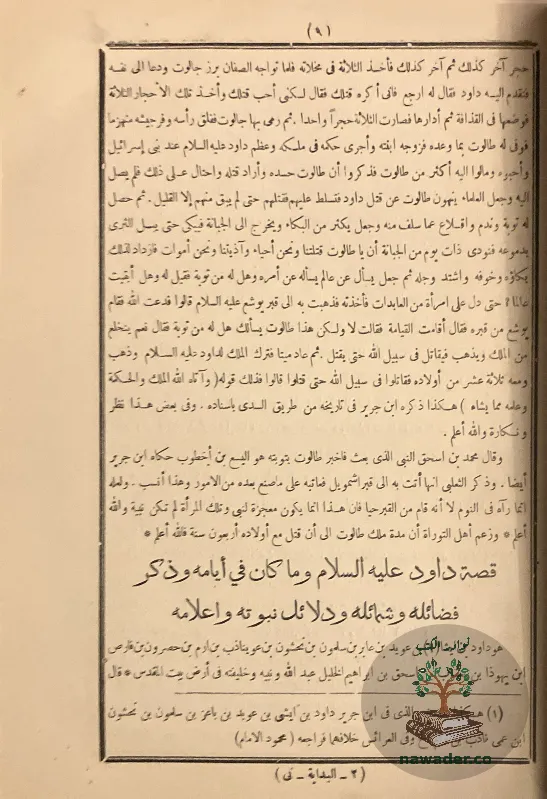 (٩)
حجر آخر كذلك ثم آخر كذلك فأخذ الثلاثة فى مخلاته فلما تواجه الصفان برز جالوت ودعا الى نفسه
فتقدم اليه داود فقال له ارجع فانى أكره قتلك فقال لكنى أحب قتلك وأخذ تلك الأحجار الثلاثة
فوضعها فى القذافة ثم أدارها فصارت الثلاثة حجراً واحدا . ثم رمى بها جالوت ففلق رأسه وفر جيشه منهزما
فوفى له طالوت بما وعده فزوجه ابنته وأجرى حكمه فى ملكه وعظم داود عليه السلام عند بنى إسرائيل
وأحبوه ومالوا اليه أكثر من طالوت فذكروا أن طالوت حسده وأراد قتله واحتال على ذلك فلم يصل
اليه وجعل العلماء ينهون طالوت عن قتل داود فتسلط عليهم فقتلهم حتى لم يبق منهم إلا القليل . ثم حصل
له توبة وندم واقلاع عما سلف منه وجعل يكثر من البكاء ويخرج الى الجبانة فيبكى حتى يبل الثرى
بدموعه فنودى ذات يوم من الجبانة أن يا طالوت قتلتنا ونحن أحياء وآذيتنا ونحن أموات فازداد لذلك
بكاؤه وخوفه واشتد وجله ثم جعل يسأل عن عالم يسأله عن أمره وهل له من توبة فقيل له وهل أبقيت
عالما ! حتى دل على امرأة من العابدات فأخذته فذهبت به الى قبر يوشع عليه السلام قالوا فدعت الله فقام
يوشع من قبره فقال أقامت القيامة فقالت لا ولكن هذا طالوت يسألك هل له من توبة فقال نعم ينخلع
من الملك ويذهب فيقاتل فى سبيل الله حتى يقتل . ثم عاد ميتا فترك الملك لداود عليه السلام وذهب
ومعه ثلاثة عشر من أولاده فقاتلوا فى سبيل الله حتى قتلوا قالوا فذلك قوله ( وآتاه الله الملك والحكمة
وعلمه مما يشاء ) هكذا ذكره ابن جرير فى تاريخه من طريق السدى باسناده . وفى بعض هذا نظر
ونكارة والله أعلم .
وقال محمد بن اسحق النبى الذى بعث فاخبر طالوت بتوبته هو اليسع بن أخطوب حكاه ابن جرير
أيضا . وذكر الثعلبى انها أتت به الى قبر اشمويل فعاتبه على ماصنع بعده من الامور وهذا أنسب . ولعله
انما رآه فى النوم لا أنه قام من القبر حيا فان هذا انما يكون معجزة لنبى وتلك المرأة لم تكن نبية والله
أعلم * وزعم أهل التوراة أن مدة ملك طالوت الى أن قتل مع أولاده أربعون سنة فالله أعلم *
قصة داود عليه السلام وما كان في أيامه وذكر
فضائله وشمائله ودلائل نبوته واعلامه
هو داود بن ايشا (١) بن عويد بن عابر بن سلمون بن نحشون بن عويناذب بن ارم بن حصرون بن فارص
ابن يهوذا بن يعقوب بن اسحق بن ابراهيم الخليل عبد الله ونبيه وخليفته فى أرض بيت المقدس * قال
(١) هكذا الذى فى ابن جرير داود بن ايشى بن عويد بن باعز بن سلمون بن نحشون
ابن عمى ناذب بن وفى العرائس خلافهما فراجعه ( محمود الامام )
(٢ - البداية - نى)
نوادر الكتب
nawader.co